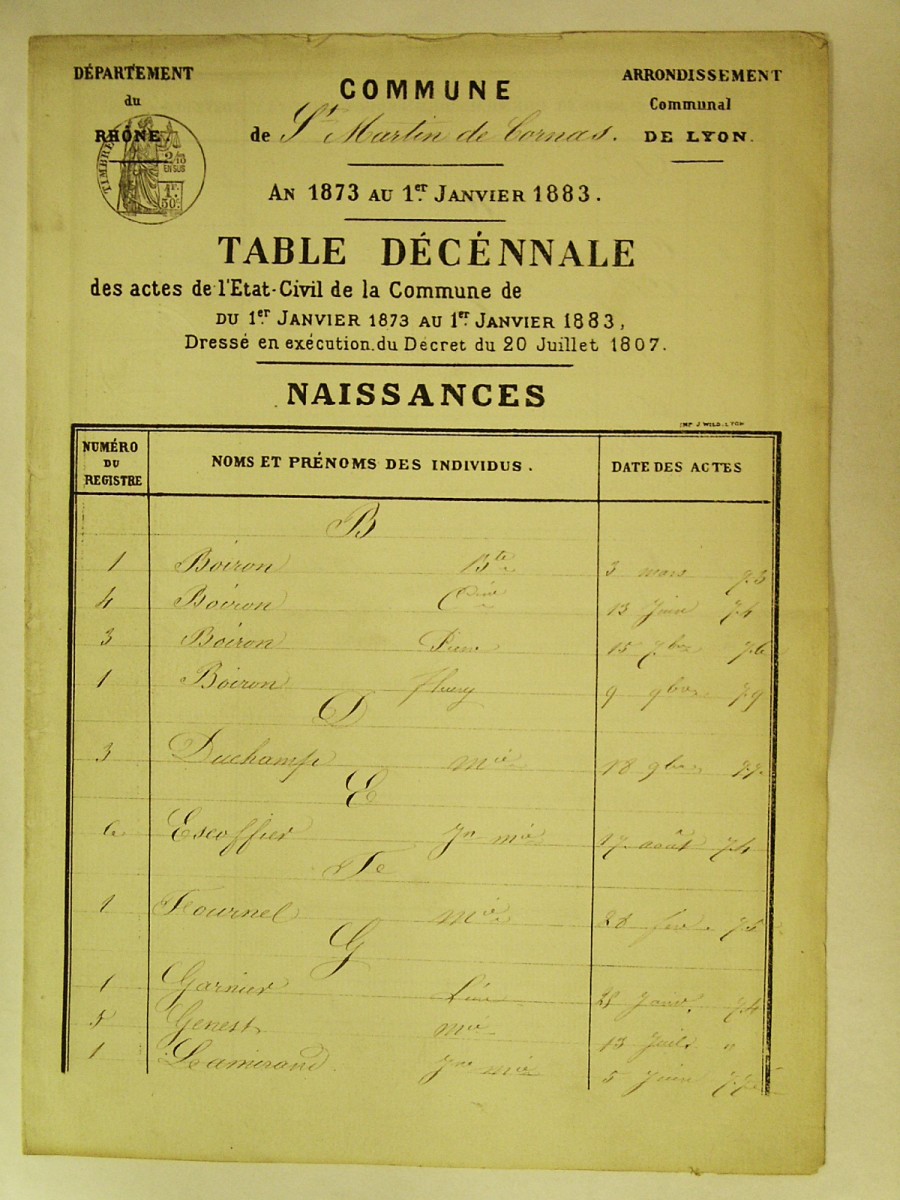 DÉPARTEMENT
du
RHÔNE.
TIMBRE
2/10
EN SUS
1F.
50C.
COMMUNE
de St Martin de Cornas.
ARRONDISSEMENT
Communal
DE LYON.
AN 1873 AU 1er JANVIER 1883.
TABLE DÉCÉNNALE
des actes de l'Etat-Civil de la Commune de
DU 1er JANVIER 1873 AU 1er JANVIER 1883,
Dressé en exécution du Décret du 20 Juillet 1807.
NAISSANCES
IMP J WILD. LYON
NUMÉRO DU REGISTRE NOMS ET PRÉNOMS DES INDIVIDUS. DATE DES ACTES
B
1 Boiron Bte 3 mars 73
4 Boiron 13 Juin 74
3 Boiron Pierre 15 7bre 76
1 Boiron fleury 9 9bre 79
D
3 Duchamp mie 18 9bre 77
E
6 Escoffier Jn mie 17 août 74
F
1 Fournel mie 28 fév. 75
G
1 Garnier 28 Janv. 74
5 Genest mie 13 Juil. "
1 Lamirand Jne mie 5 Juin